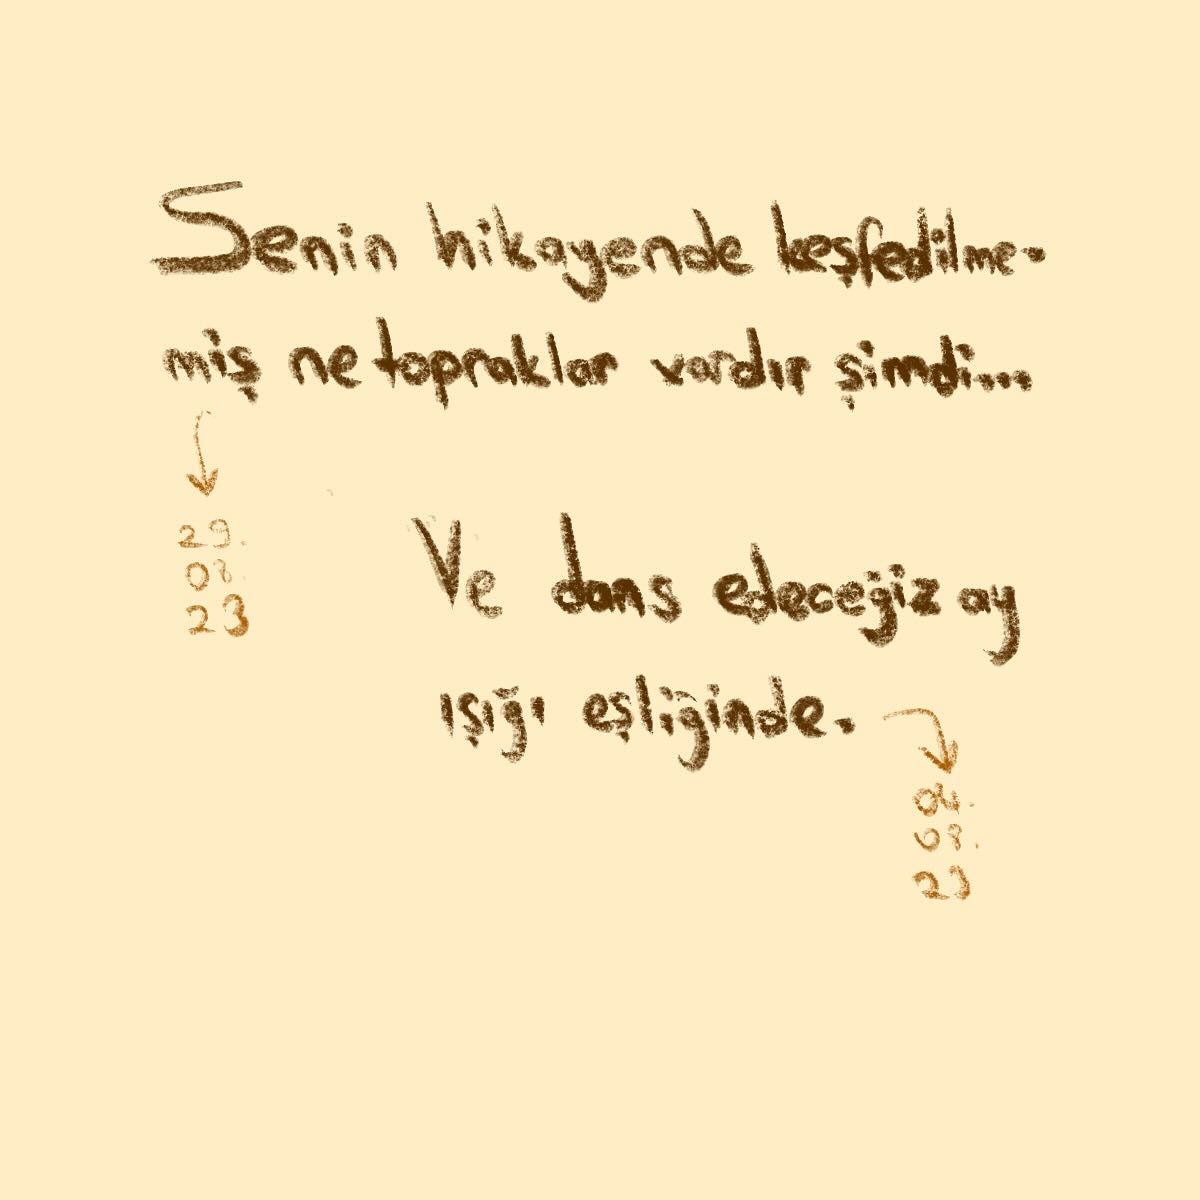 Senin hikayende keşfedilme-
miş ne topraklar vardır şimdi...
29.
08.
23
Ve dans edeceğiz ay
ışığı eşliğinde.
04.
08.
23